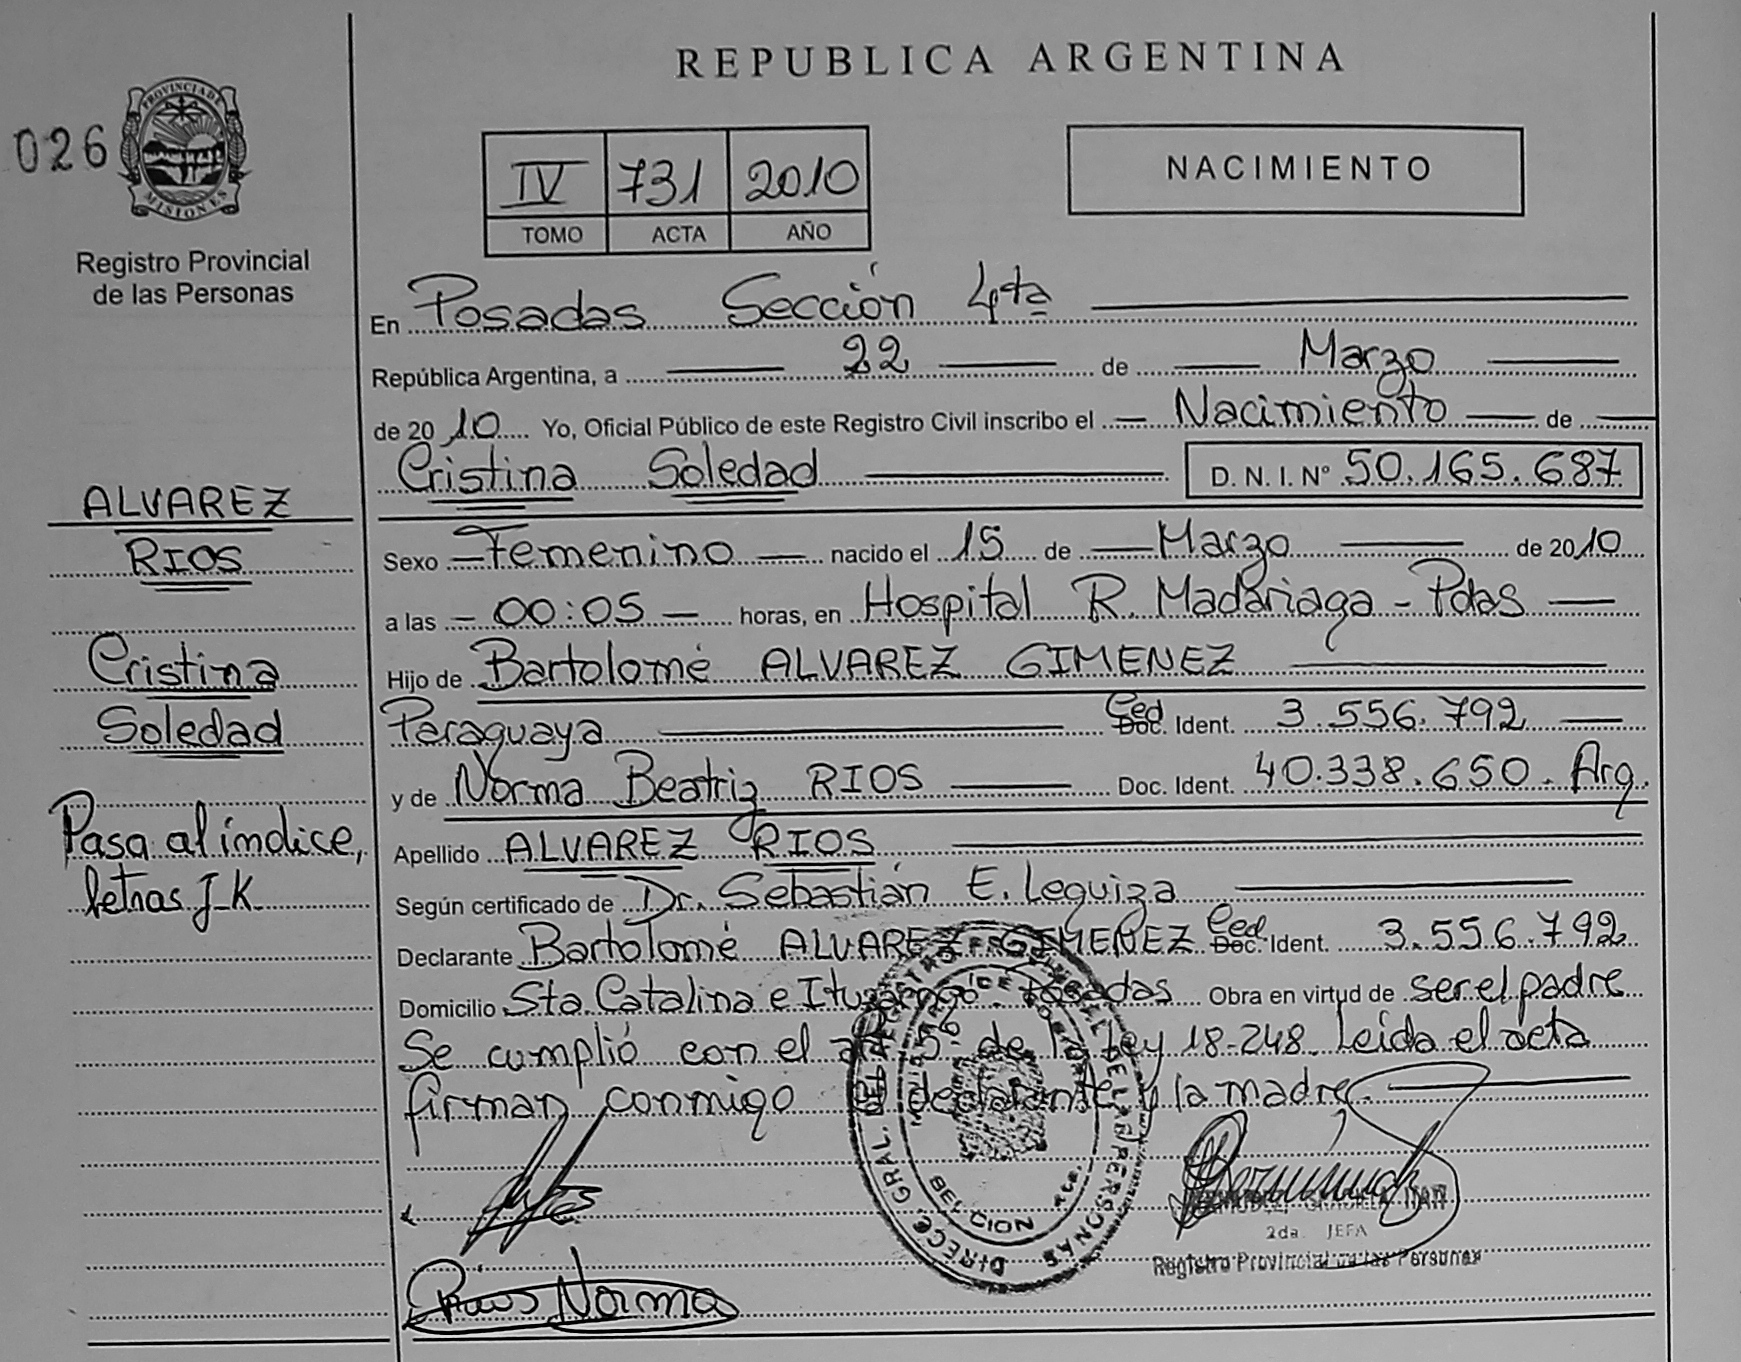 REPUBLICA ARGENTINA
026
PROVINCIA DE
MISIONES
Registro Provincial
de las Personas
IV 731 2010
TOMO ACTA AÑO
NACIMIENTO
En Posadas Sección 4ta
República Argentina, a 22 de Marzo
de 2010 Yo, Oficial Público de este Registro Civil inscribo el Nacimiento de
Cristina Soledad D. N. I. Nº 50.165.687
Sexo Femenino nacido el 15 de Marzo de 2010
a las 00:05 horas, en Hospital R. Madariaga - Pdas
Hijo de Bartolomé ALVAREZ GIMENEZ
Paraguaya Ced Doc. Ident. 3.556.792
y de Norma Beatriz RIOS Doc. Ident. 40.338.650. Arg.
Apellido ALVAREZ RIOS
Según certificado de Dr. Sebastián E. Leguiza
Declarante Bartolomé ALVAREZ GIMENEZ Ced Doc. Ident. 3.556.792
Domicilio Sta. Catalina e Ituzaingó. Posadas Obra en virtud de ser el padre
Se cumplió con el art. 5 de la Ley 18-248. Leída el acta
firman conmigo declarante y la madre.
ALVAREZ
RIOS
Cristina
Soledad
Pasa al índice,
letras J-K
DIRECC. GRAL. DEL REGISTRO PROVINCIAL DE LAS PERSONAS
SECCION 4ta.
2da. JEFA
Registro Provincial de las Personas
Rios Norma